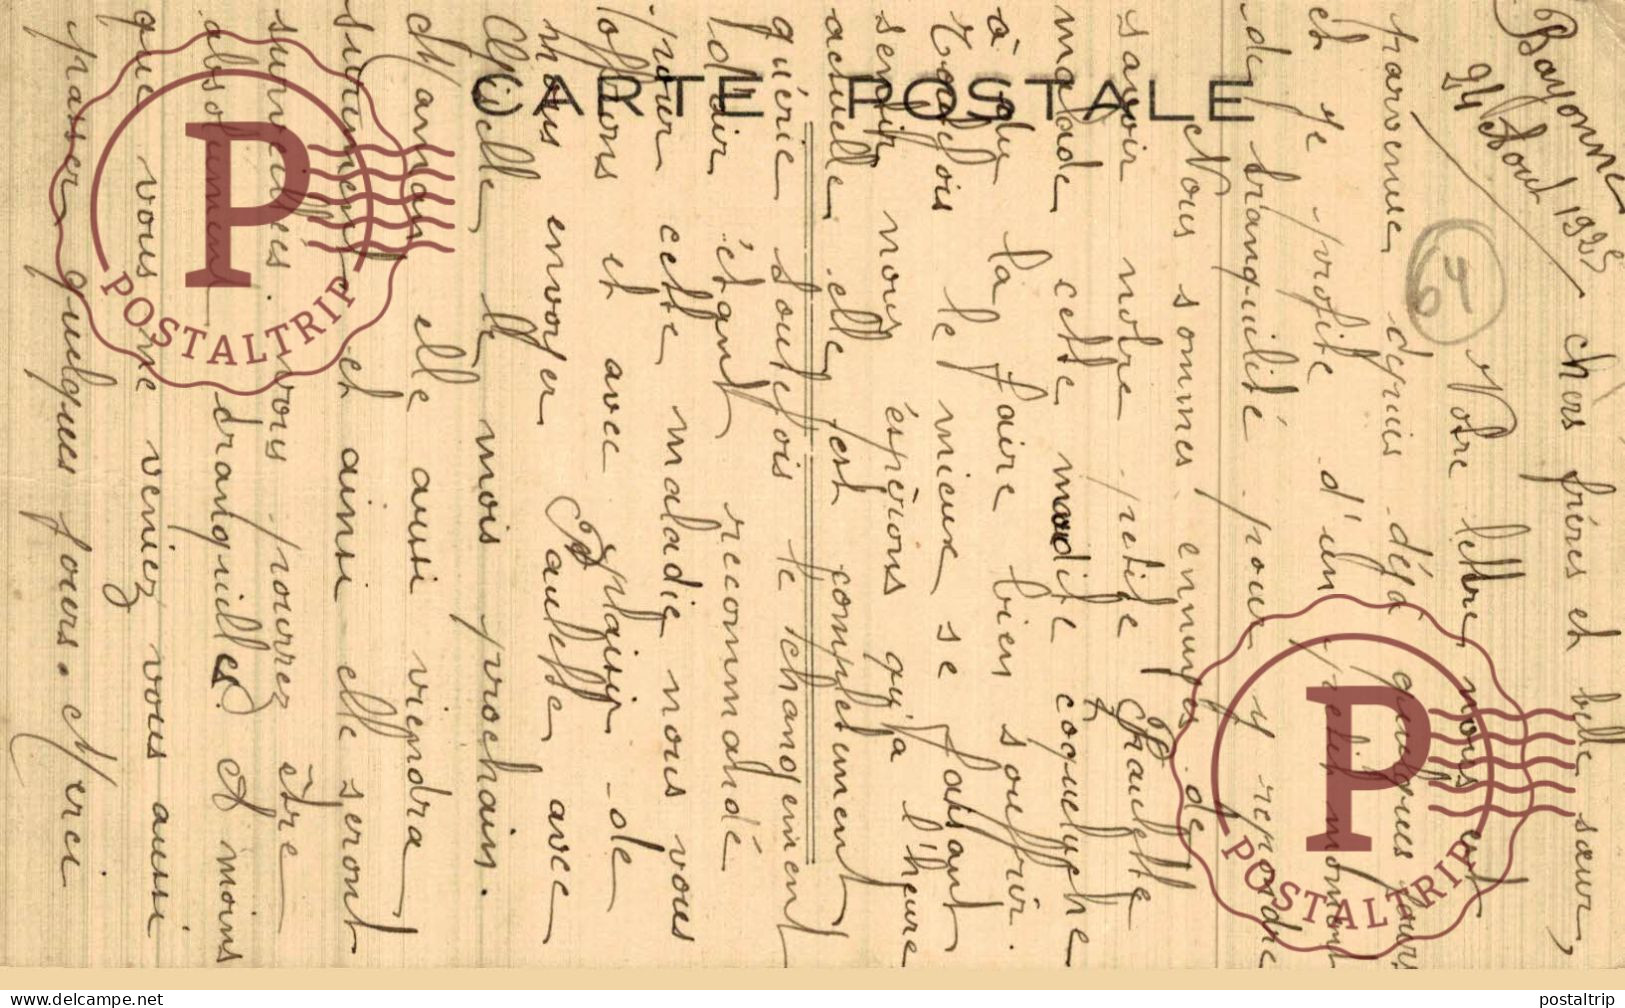 Bayonne
24 Aout 1925
chers frères et belle sœur,
Votre lettre nous est
parvenue depuis déjà quelques jours
et je profite d'un petit moment
de tranquilité pour y repondre
Nous sommes ennuyés de
savoir notre petite Paulette
malade cette maudite coqueluche
à du la faire bien souffrir.
Toutefois le mieux se faisant
sentir nous éspèrions qu'a l'heure
actuelle elle est completement
guérie toutefois le changement
d'air étant recommandé
pour cette maladie nous vous
offrons et avec plaisir de
nous envoyer Paulette avec
Giselle le mois prochain.
Maman elle aussi viendra
surement et ainsi elle seront
surveillées vous pourrez être
absolument tranquilles. A moins
que vous me veniez vous aussi
passer quelques jours. Merci
CARTE POSTALE
64
POSTALTRIP
POSTALTRIP
www.delcampe.net
postaltrip